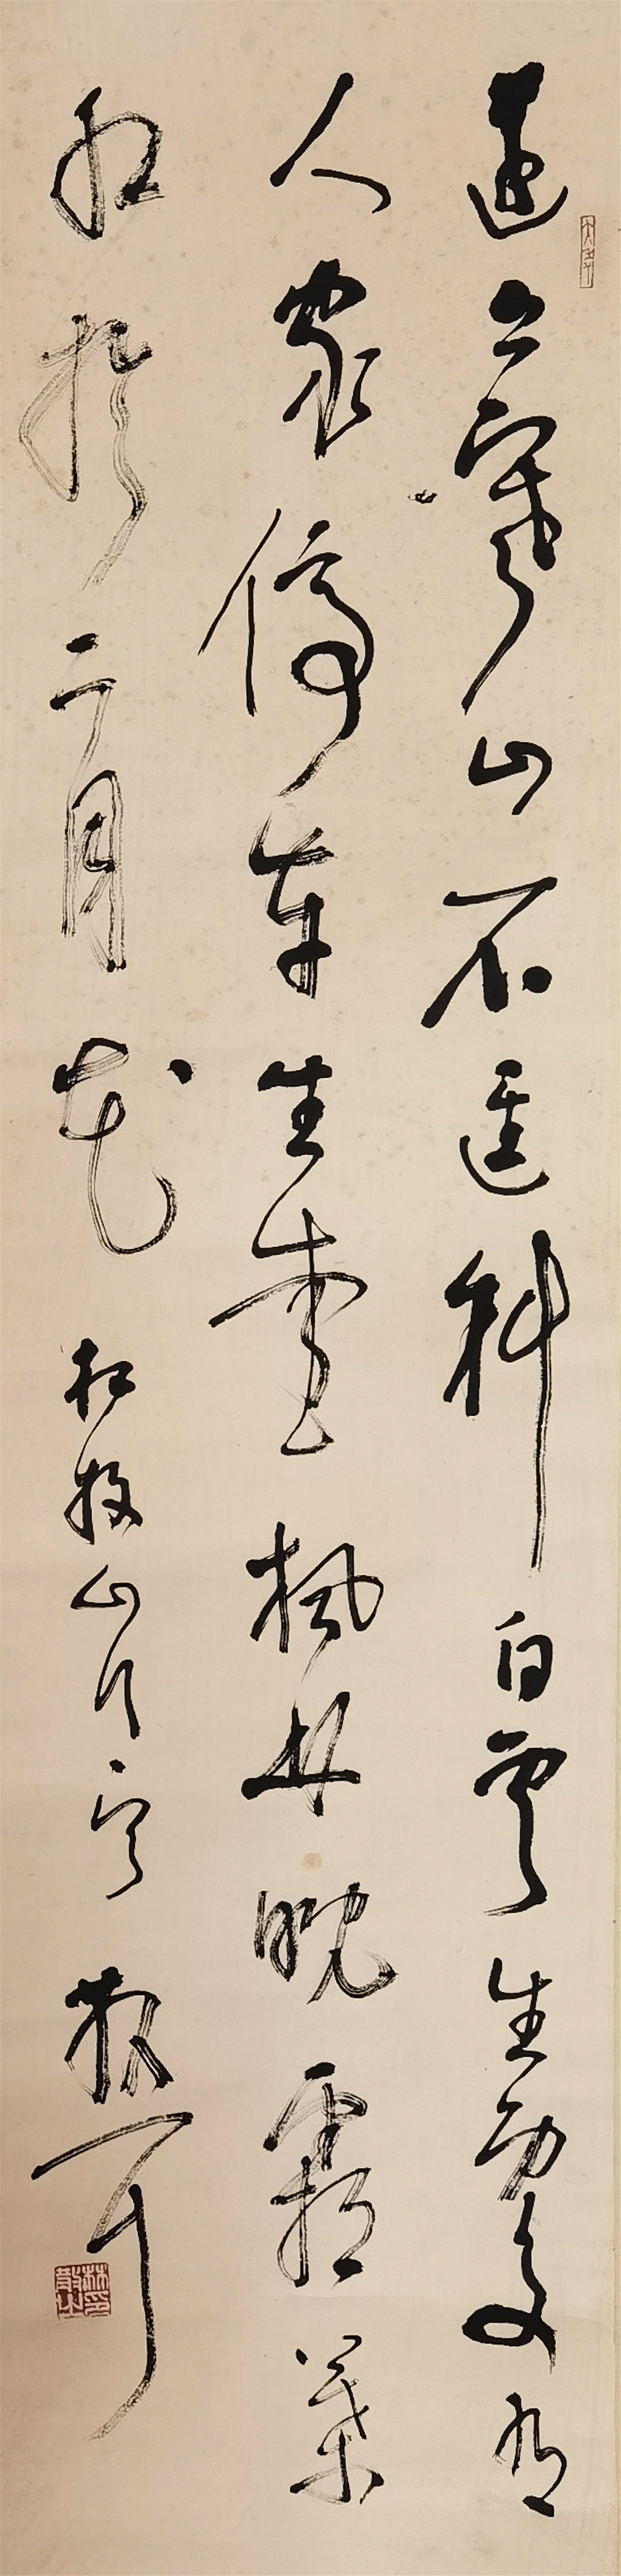 遠上寒山石逕斜白雲生處有
人家停車坐愛楓林晚霜葉
紅於二月花 杜牧山行 散耳
林散之印